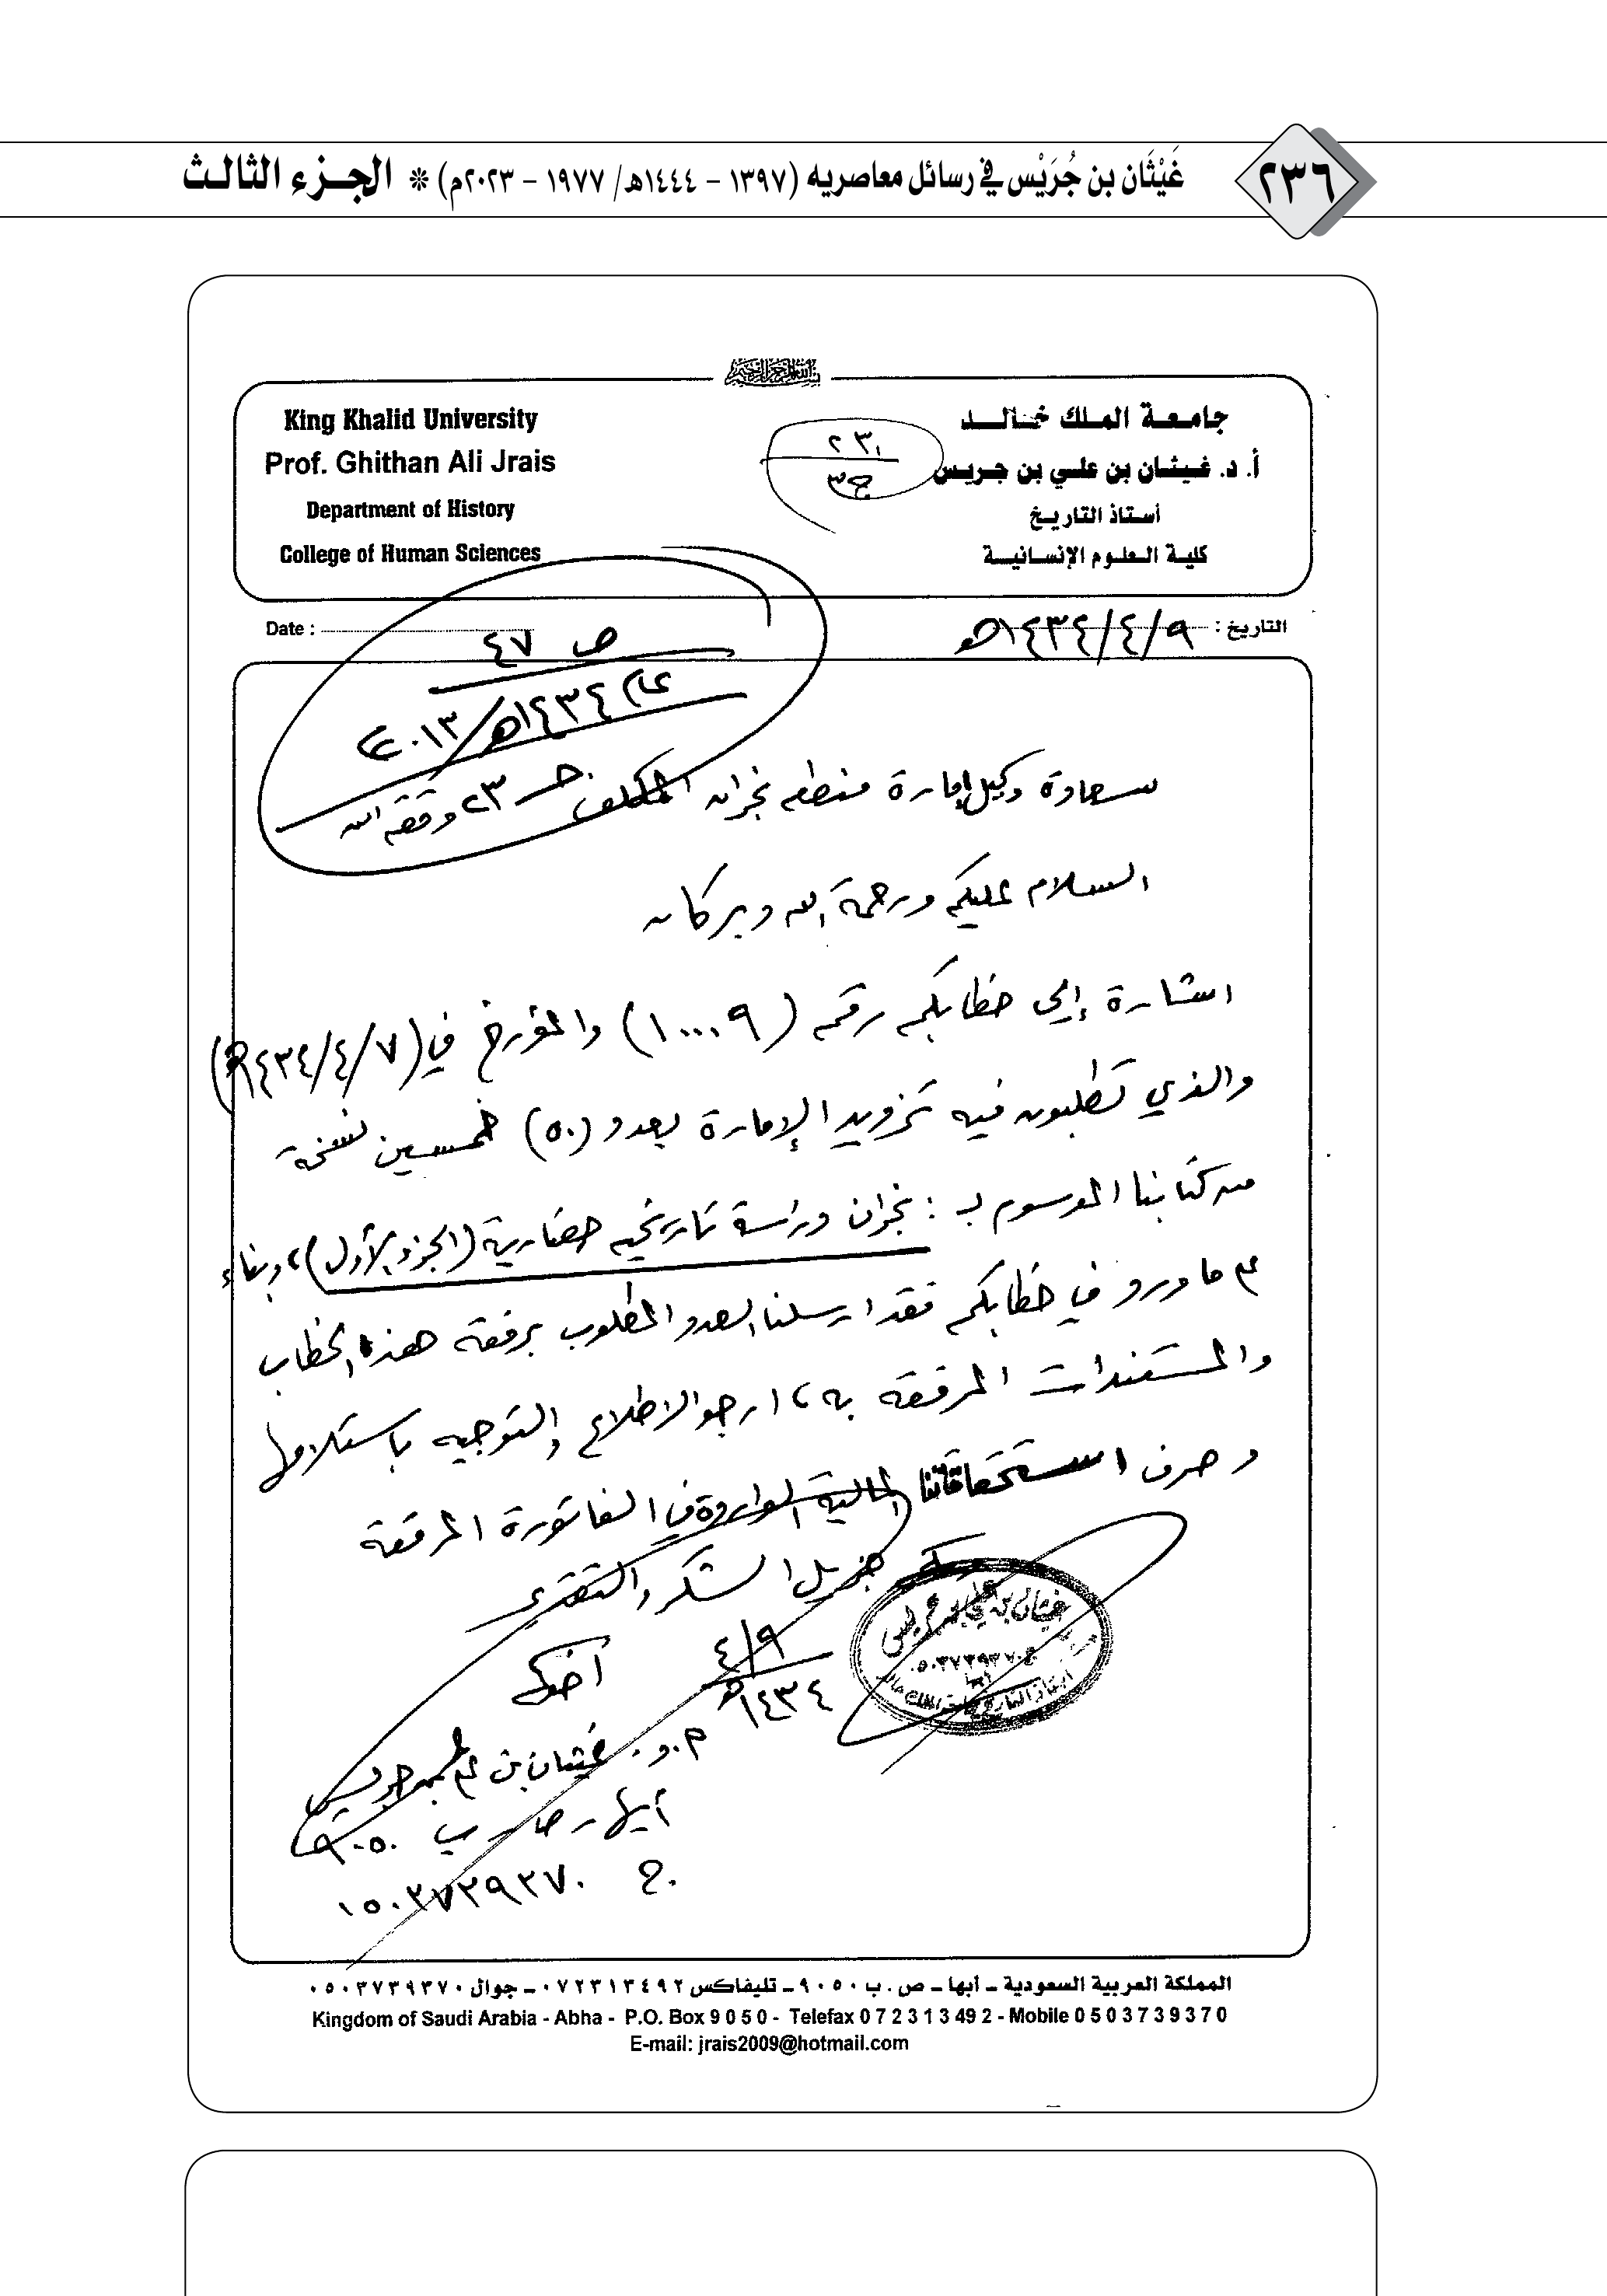 ٢٣٦
غَيْثَان بن جُرَيْس في رسائل معاصريه (١٣٩٧ - ١٤٤٤هـ/ ١٩٧٧ - ٢٠٢٣م) * الجـزء الثالث
جامـعـة الملـك خـالـد
أ. د. غـيـثـان بن علـي بن جـريـس
أسـتاذ التاريـخ
كليـة الـعلـوم الإنسـانيـة
King Khalid University
Prof. Ghithan Ali Jrais
Department of History
College of Human Sciences
ج٣
التاريخ : ٩/٤/١٤٣٤هـ
Date :
ص ٤٧
عام ١٤٣٤هـ/٢٠١٣م
جـ ٢٣
سعادة وكيل إمارة منطقة نجران المكلف وفقه الله
السلام عليكم ورحمة الله وبركاته
اشارة إلى خطابكم رقم (١٠٠٠٩) والمؤرخ في (٧/٤/١٤٣٤هـ)
والذي تطلبون فيه تزويد الإمارة بعدد (٥٠) خمسين نسخة
من كتابنا الموسوم بـ : نجران دراسة تاريخية حضارية (الجزء الأول)، وبناء
على ما ورد في خطابكم فقد ارسلنا العدد المطلوب برفقة هذا الخطاب
والمستندات المرفقة به، ارجو الاطلاع والتوجيه باستلامها
وصرف استحقاقاتنا المالية الواردة في الفاتورة المرفقة
جزيل الشكر والتقدير
أخوكم
٩/٤
١٤٣٤هـ
أ.د. غيثان بن علي بن جريس
أبها - ص ب ٩٠٥٠
ج. ٠٥٠٣٧٣٩٣٧٠
المملكة العربية السعودية ـ أبها ـ ص . ب ٩٠٥٠ ـ تليفاكس ٠٧٢٣١٣٤٩٢ ـ جوال ٠٥٠٣٧٣٩٣٧٠
Kingdom of Saudi Arabia - Abha - P.O. Box 9 0 5 0 - Telefax 0 7 2 3 1 3 49 2 - Mobile 0 5 0 3 7 3 9 3 7 0
E-mail: jrais2009@hotmail.com